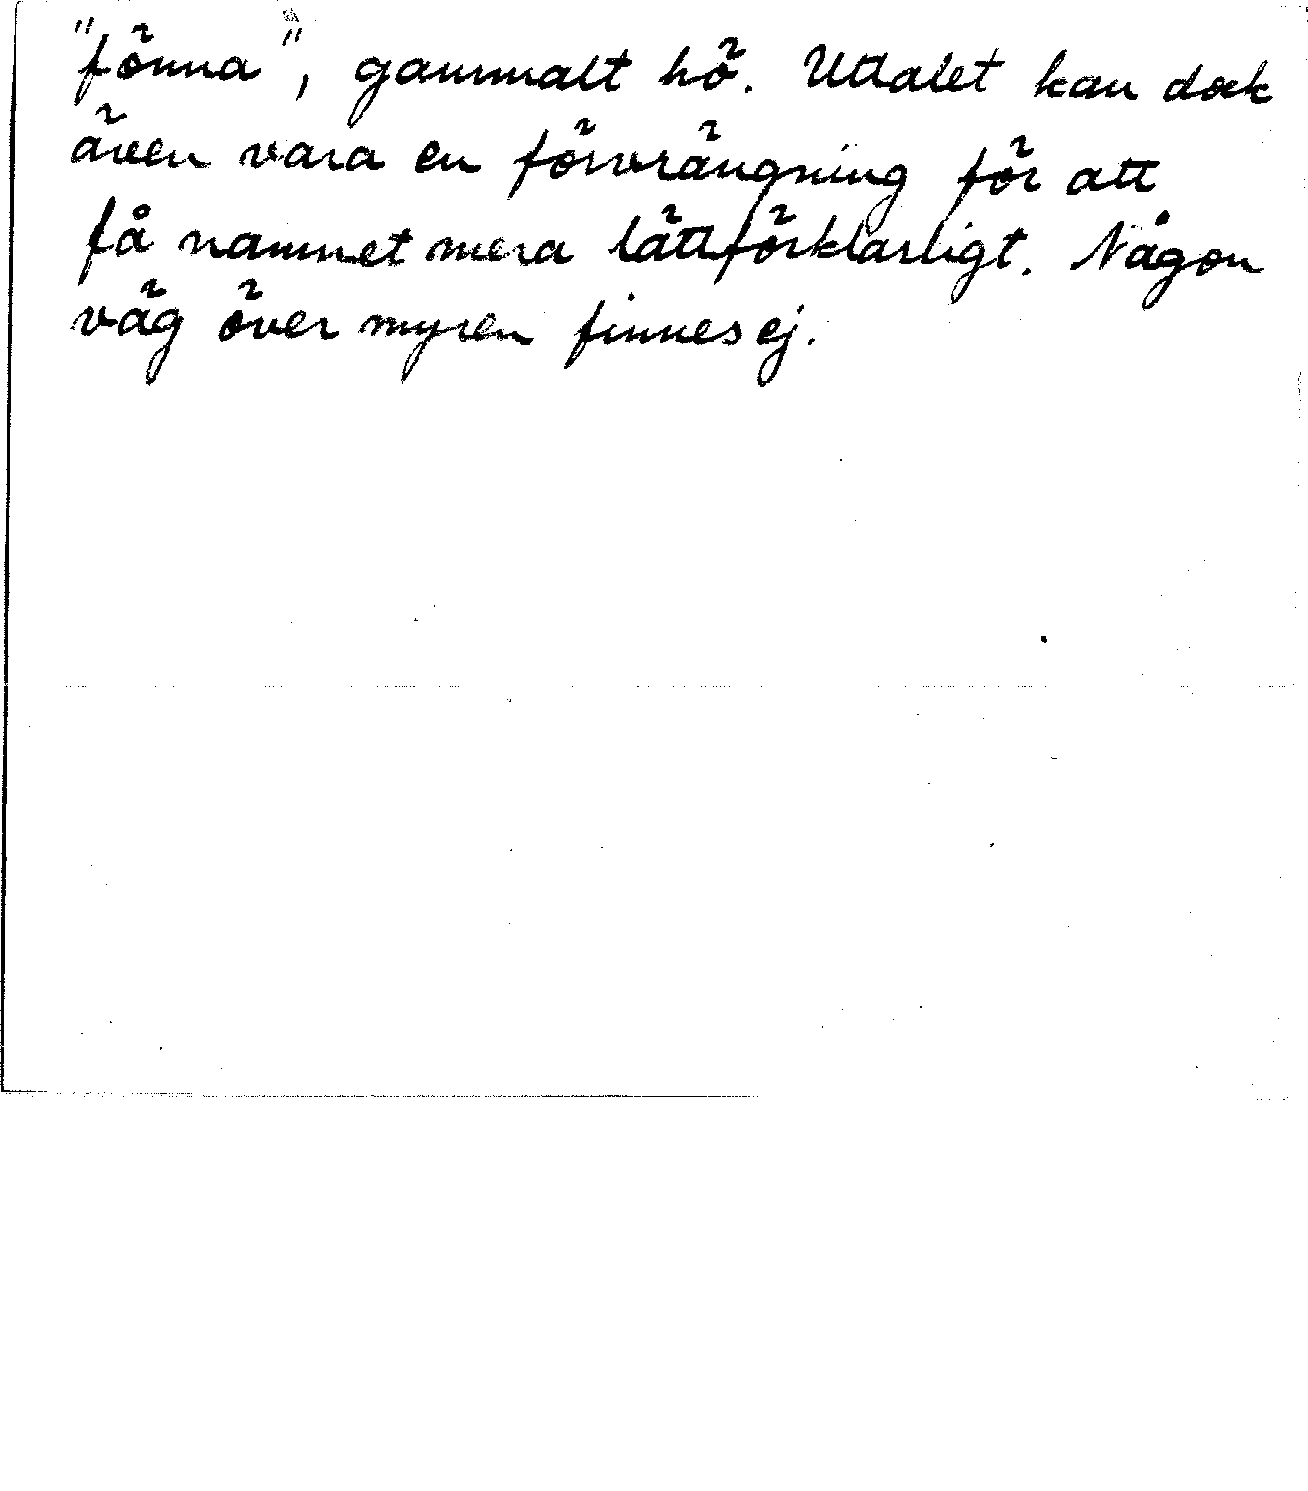 "fönna", gammalt hö. Uttalet kan dock
även vara en förvrängning för att
få namnet mera lättförklarligt. Någon
väg över myren finnes ej.